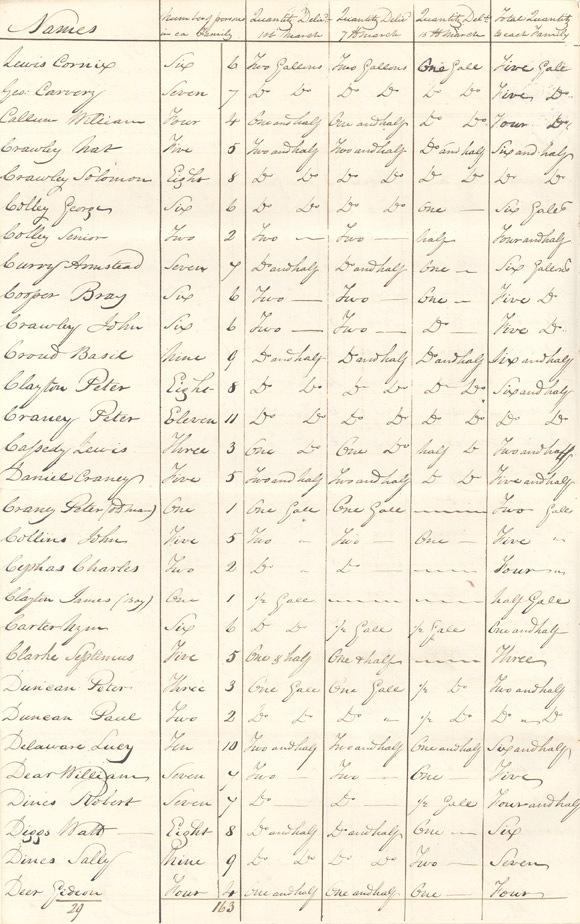 Names Number of persons in ea Family Quantity Delivd 1st March Quantity Delivd 7th March Quantity Delvd 15th March Total Quantity to each Family
Lewis Cornix Six 6 Two Gallons Two Gallons One Galln Five Galls
Geo. Carvery Seven 7 Do Do Do Do Do Do Five Do
Callum William Four 4 One and half One and half Do Do Four Do
Crawley Nat Five 5 Two and half Two and half Do and half Six and half
Crawley Solomon Eight 8 Do Do Do Do Do Do Do Do
Colley George Six 6 Do Do Do Do One — Six Galls
Colly Senior Two 2 Two — Two — half Four and half
Curry Armstead Seven 7 Do and half Do and half One — Six Gallns
Cooper Bray Six 6 Two — Two — One — Five Do
Crawley John Six 6 Two — Two — Do — Five Do
Croud Basil Nine 9 Do and half Do and half Do and half Six and half
Clayton Peter Eight 8 Do Do Do Do Do Do Six and half
Craney Peter Eleven 11 Do Do Do Do Do Do Do Do
Cassedy Lewis Three 3 One Do One Do half D Two and half
Daniel Craney Five 5 Two and half Two and half D D Five and half
Craney Peter (od man) One 1 One Gale One Gale — Two Galls
Collins John Five 5 Two " Two — One — Five "
Cephas Charles Two 2 Do " Do — — Four "
Clayton James (Boy) One 1 1/2 Gale — — half Gale
Carter Wm Six 6 D D 1/2 Gale 1/2 Gale One and half
Clarke Septimus Five 5 One & half One & half — Three
Duncan Peter Three 3 One Gale One Gale 1/2 Do Two and half
Duncan Paul Two 2 Do Do Do " 1/2 Do Do " Do
Delaware Lucy Ten 10 Two and half Two and half One and half Six and half
Dear William Seven 7 Two — Two — One Five
Dines Robert Seven 7 Do Do — 1/2 Gale Four and half
Diggs Watt Eight 8 Do and half Do and half One — Six
Dines Sally Nine 9 Do Do Do Do Two — Seven
Deer Gideon Four 4 One and half One and half One — Four
29 163